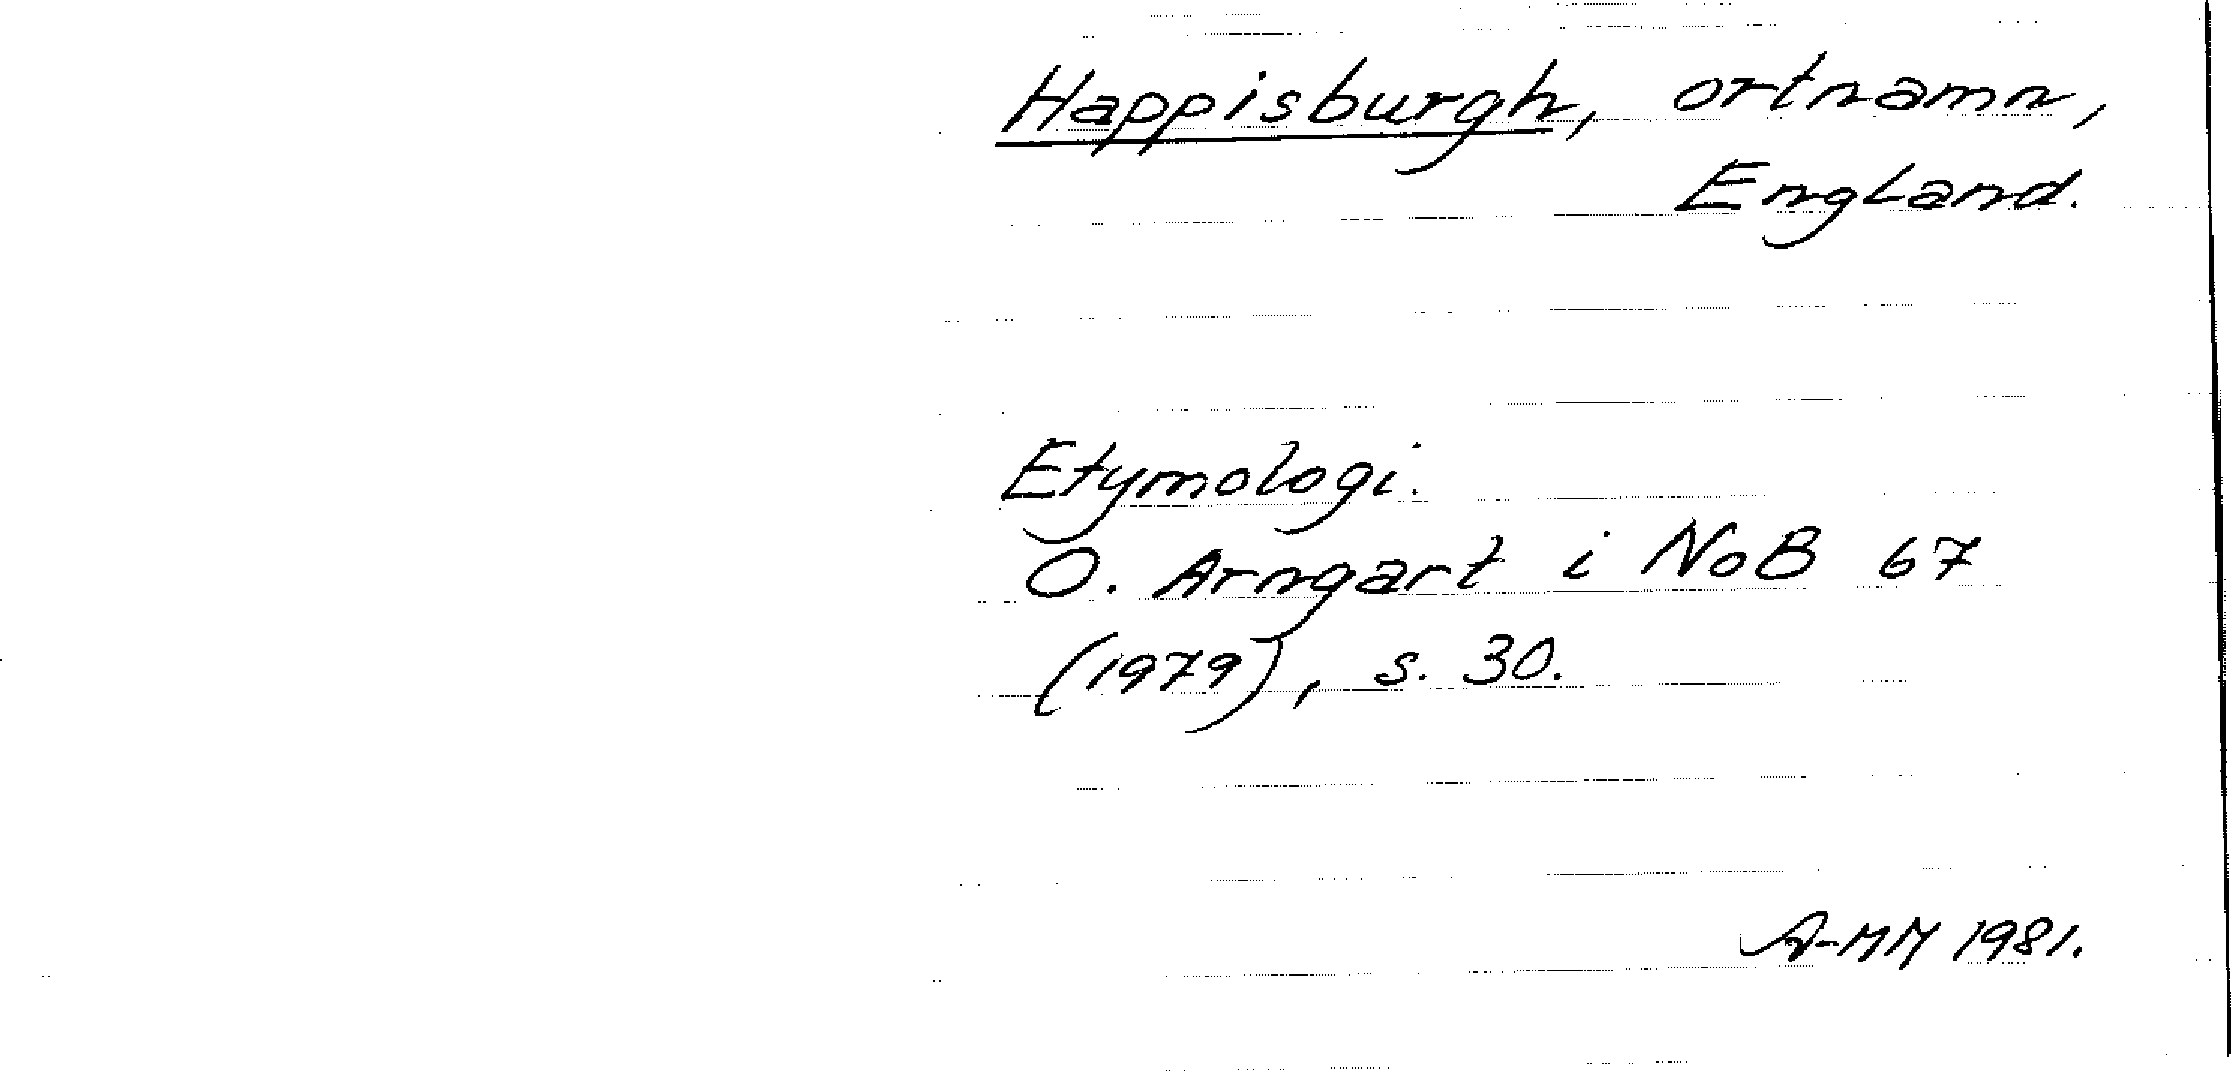 Happisburgh, ortnamn,
England.
Etymologi.
O. Arngart i NoB 67
(1979), s. 30.
A-MM 1981.